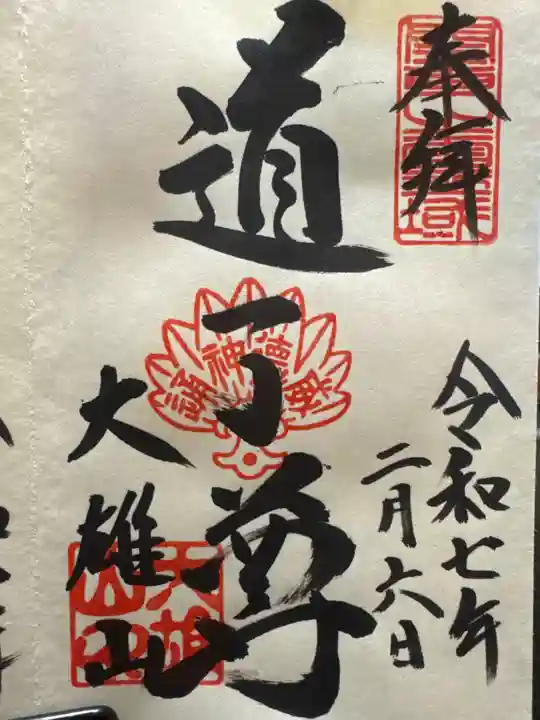 奉拝
令和七年
二月六日
道了尊
大雄山